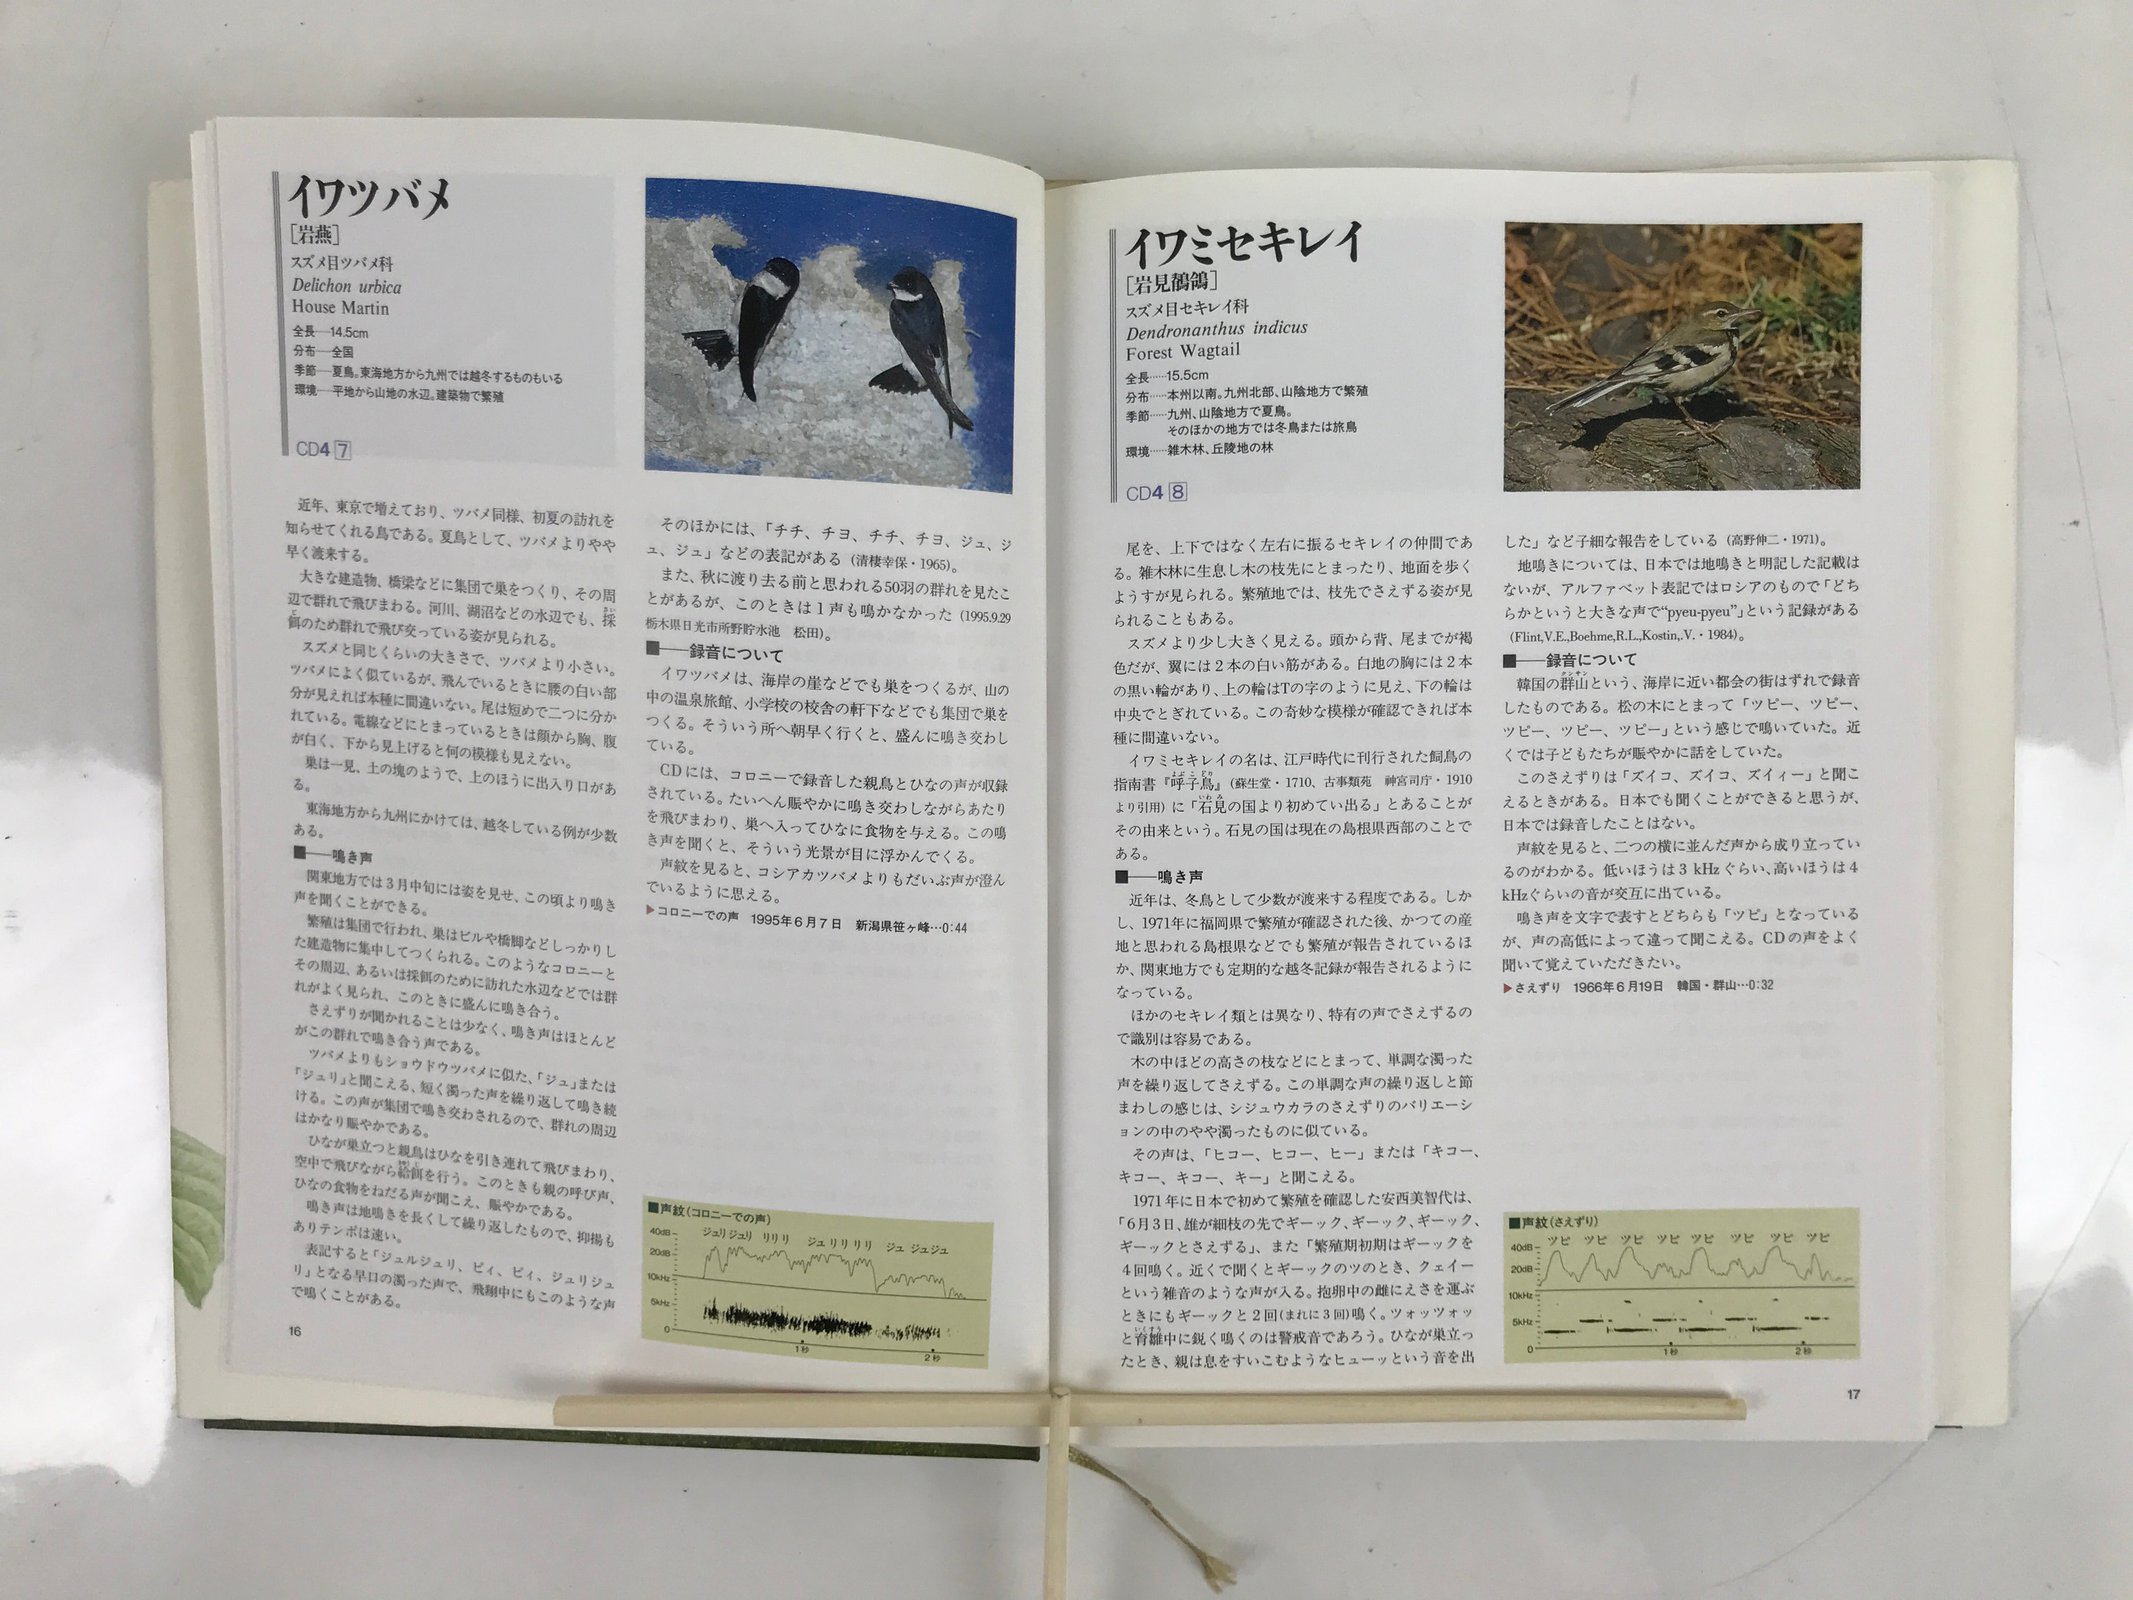 イワツバメ
[岩燕]
スズメ目ツバメ科
Delichon urbica
House Martin
全長―14.5cm
分布―全国
季節―夏鳥。東海地方から九州では越冬するものもいる
環境―平地から山地の水辺。建築物で繁殖
CD4 7
近年、東京で増えており、ツバメ同様、初夏の訪れを
知らせてくれる鳥である。夏鳥として、ツバメよりやや
早く渡来する。
大きな建造物、橋梁などに集団で巣をつくり、その周
辺で群れで飛びまわる。河川、湖沼などの水辺でも、採
餌のため群れで飛び交っている姿が見られる。
スズメと同じくらいの大きさで、ツバメより小さい。
ツバメによく似ているが、飛んでいるときに腰の白い部
分が見えれば本種に間違いない。尾は短めで二つに分か
れている。電線などにとまっているときは顔から胸、腹
が白く、下から見上げると何の模様も見えない。
巣は一見、土の塊のようで、上のほうに出入り口があ
る。
東海地方から九州にかけては、越冬している例が少数
ある。
■――鳴き声
関東地方では3月中旬には姿を見せ、この頃より鳴き
声を聞くことができる。
繁殖は集団で行われ、巣はビルや橋脚などしっかりし
た建造物に集中してつくられる。このようなコロニーと
その周辺、あるいは採餌のために訪れた水辺などでは群
れがよく見られ、このときに盛んに鳴き合う。
さえずりが聞かれることは少なく、鳴き声はほとんど
がこの群れで鳴き合う声である。
ツバメよりもショウドウツバメに似た、「ジュ」または
「ジュリ」と聞こえる、短く濁った声を繰り返して鳴き続
ける。この声が集団で鳴き交わされるので、群れの周辺
はかなり賑やかである。
ひなが巣立つと親鳥はひなを引き連れて飛びまわり、
空中で飛びながら給餌を行う。このときも親の呼び声、
ひなの食物をねだる声が聞こえ、賑やかである。
鳴き声は地鳴きを長くして繰り返したもので、抑揚も
ありテンポは速い。
表記すると「ジュルジュリ、ピィ、ピィ、ジュリジュ
リ」となる早口の濁った声で、飛翔中にもこのような声
で鳴くことがある。
16
そのほかには、「チチ、チヨ、チチ、チヨ、ジュ、ジ
ュ、ジュ」などの表記がある（清棲幸保・1965）。
また、秋に渡り去る前と思われる50羽の群れを見たこ
とがあるが、このときは1声も鳴かなかった（1995.9.29
栃木県日光市所野貯水池　松田）。
■――録音について
イワツバメは、海岸の崖などでも巣をつくるが、山の
中の温泉旅館、小学校の校舎の軒下などでも集団で巣を
つくる。そういう所へ朝早く行くと、盛んに鳴き交わし
ている。
CDには、コロニーで録音した親鳥とひなの声が収録
されている。たいへん賑やかに鳴き交わしながらあたり
を飛びまわり、巣へ入ってひなに食物を与える。この鳴
き声を聞くと、そういう光景が目に浮かんでくる。
声紋を見ると、コシアカツバメよりもだいぶ声が澄ん
でいるように思える。
▶コロニーでの声　1995年6月7日　新潟県笹ヶ峰…0:44
■声紋（コロニーでの声）
ジュリジュリ　リリリ　ジュリリリリ　ジュ ジュジュ
40dB
20dB
10kHz
5kHz
0
1秒
2秒
イワミセキレイ
[岩見鶺鴒]
スズメ目セキレイ科
Dendronanthus indicus
Forest Wagtail
全長……15.5cm
分布……本州以南。九州北部、山陰地方で繁殖
季節……九州、山陰地方で夏鳥。
そのほかの地方では冬鳥または旅鳥
環境……雑木林、丘陵地の林
CD4 8
尾を、上下ではなく左右に振るセキレイの仲間であ
る。雑木林に生息し木の枝先にとまったり、地面を歩く
ようすが見られる。繁殖地では、枝先でさえずる姿が見
られることもある。
スズメより少し大きく見える。頭から背、尾までが褐
色だが、翼には2本の白い筋がある。白地の胸には2本
の黒い輪があり、上の輪はTの字のように見え、下の輪は
中央でとぎれている。この奇妙な模様が確認できれば本
種に間違いない。
イワミセキレイの名は、江戸時代に刊行された飼鳥の
指南書『呼子鳥』（蘇生堂・1710、古事類苑　神宮司庁・1910
より引用）に「石見の国より初めてい出る」とあることが
その由来という。石見の国は現在の島根県西部のことで
ある。
■――鳴き声
近年は、冬鳥として少数が渡来する程度である。しか
し、1971年に福岡県で繁殖が確認された後、かつての産
地と思われる島根県などでも繁殖が報告されているほ
か、関東地方でも定期的な越冬記録が報告されるように
なっている。
ほかのセキレイ類とは異なり、特有の声でさえずるの
で識別は容易である。
木の中ほどの高さの枝などにとまって、単調な濁った
声を繰り返してさえずる。この単調な声の繰り返しと節
まわしの感じは、シジュウカラのさえずりのバリエーシ
ョンの中のやや濁ったものに似ている。
その声は、「ヒコー、ヒコー、ヒー」または「キコー、
キコー、キコー、キー」と聞こえる。
1971年に日本で初めて繁殖を確認した安西美智代は、
「6月3日、雄が細枝の先でギーック、ギーック、ギーック、
ギーックとさえずる」、また「繁殖期初期はギーックを
4回鳴く。近くで聞くとギーックのツのとき、クェイー
という雑音のような声が入る。抱卵中の雌にえさを運ぶ
ときにもギーックと2回（まれに3回）鳴く。ツォッツォッ
と育雛中に鋭く鳴くのは警戒音であろう。ひなが巣立っ
たとき、親は息をすいこむようなヒューッという音を出
した」など子細な報告をしている（高野伸二・1971）。
地鳴きについては、日本では地鳴きと明記した記載は
ないが、アルファベット表記ではロシアのもので「どち
らかというと大きな声で“pyeu-pyeu”」という記録がある
（Flint,V.E.,Boehme,R.L.,Kostin,.V.・1984）。
■――録音について
韓国の群山という、海岸に近い都会の街はずれで録音
したものである。松の木にとまって「ツピー、ツピー、
ツピー、ツピー、ツピー」という感じで鳴いていた。近
くでは子どもたちが賑やかに話をしていた。
このさえずりは「ズイコ、ズイコ、ズイィー」と聞こ
えるときがある。日本でも聞くことができると思うが、
日本では録音したことはない。
声紋を見ると、二つの横に並んだ声から成り立ってい
るのがわかる。低いほうは3 kHzぐらい、高いほうは4
kHzぐらいの音が交互に出ている。
鳴き声を文字で表すとどちらも「ツピ」となっている
が、声の高低によって違って聞こえる。CDの声をよく
聞いて覚えていただきたい。
▶さえずり　1966年6月19日　韓国・群山…0:32
■声紋（さえずり）
ツピ　ツピ　ツピ　ツピ　ツピ　ツピ　ツピ　ツピ
40dB
20dB
10kHz
5kHz
0
1秒
2秒
17